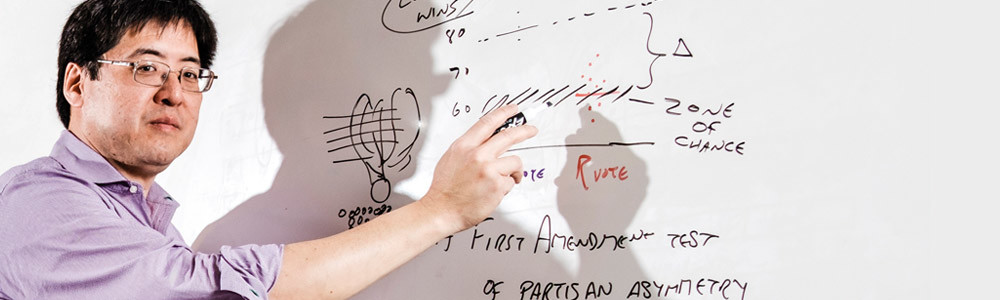 WINS
80
70
60
ZONE
OF
CHANCE
OTE
R VOTE
FIRST AMENDMENT TEST
OF PARTISAN ASYMMETRY
Δ